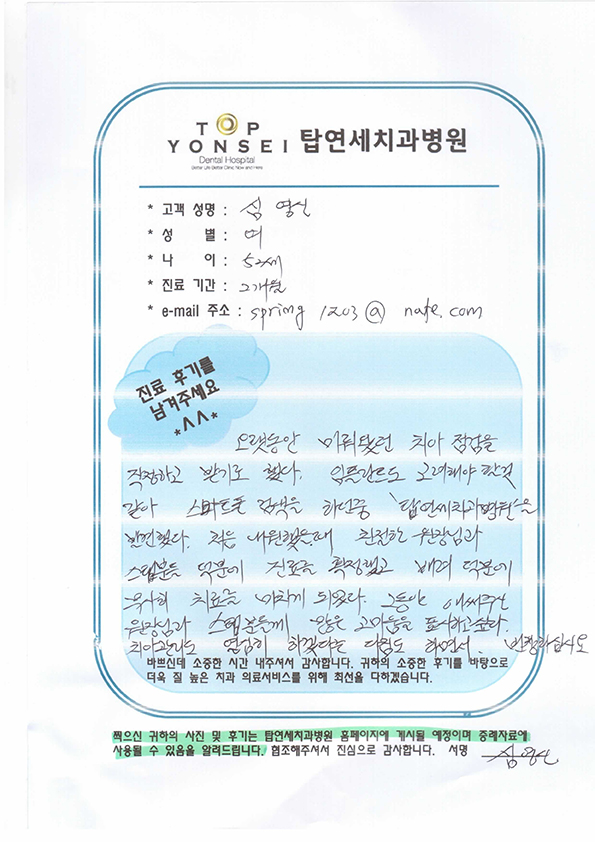 TOP
YONSEI 탑연세치과병원
Dental Hospital
Better Life Better Clinic, Now and Here
* 고객 성명 : 심영신
* 성 별 : 여
* 나 이 : 52세
* 진료 기간 : 2개월
* e-mail 주소 : spring1203@nate.com
진료 후기를
남겨주세요
*^^*
오랫동안 미뤄뒀던 치아 점검을
작정하고 받기로 했다. 임플란트도 고려해야 할것
같아 스마트폰 검색을 하던중 '탑연세치과병원'을
발견했다. 처음 내원했을때 친절한 원장님과
스텝분들 덕분에 진료를 확정했고 배려 덕분에
무사히 치료를 마치게 되었다. 그동안 애써주신
원장님과 스텝분들께 많은 고마움을 표시하고싶다.
치아관리도 열심히 하겠다는 다짐도 하면서.
바쁘신데 소중한 시간 내주셔서 감사합니다. 귀하의 소중한 후기를 바탕으로
더욱 질 높은 치과 의료서비스를 위해 최선을 다하겠습니다.
찍으신 귀하의 사진 및 후기는 탑연세치과병원 홈페이지에 게시될 예정이며 증례자료에
사용될 수 있음을 알려드립니다. 협조해주셔서 진심으로 감사합니다. 서명 심영신